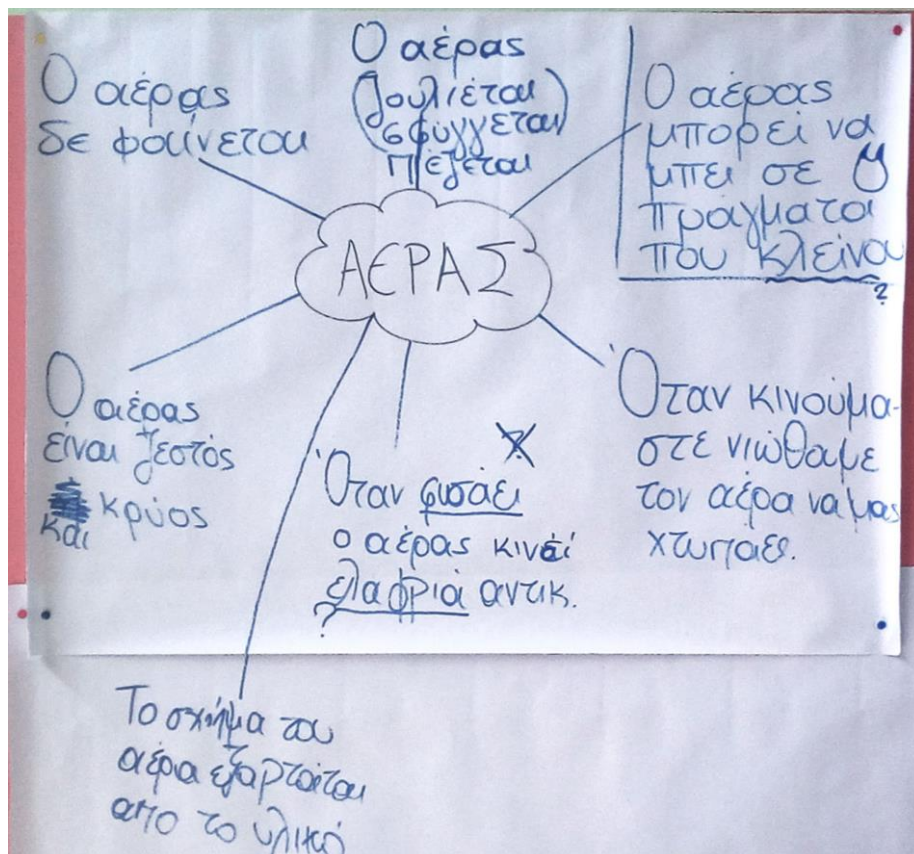 Ο αέρας
δε φαίνεται
Ο αέρας
(ζουλιέται
σφύγγεται)
πιέζεται
Ο αέρας
μπορεί να
μπει σε
πράγματα
που κλείνου
?
ΑΕΡΑΣ
Ο αέρας
είναι ζεστός
και κρύος
Όταν φυσάει
ο αέρας κινεί
ελαφριά αντικ.
?
Όταν κινούμα-
στε νιώθαμε
τον αέρα να μας
χτυπάει.
Το σχήμα του
αέρα εξαρτάται
από το υλικό